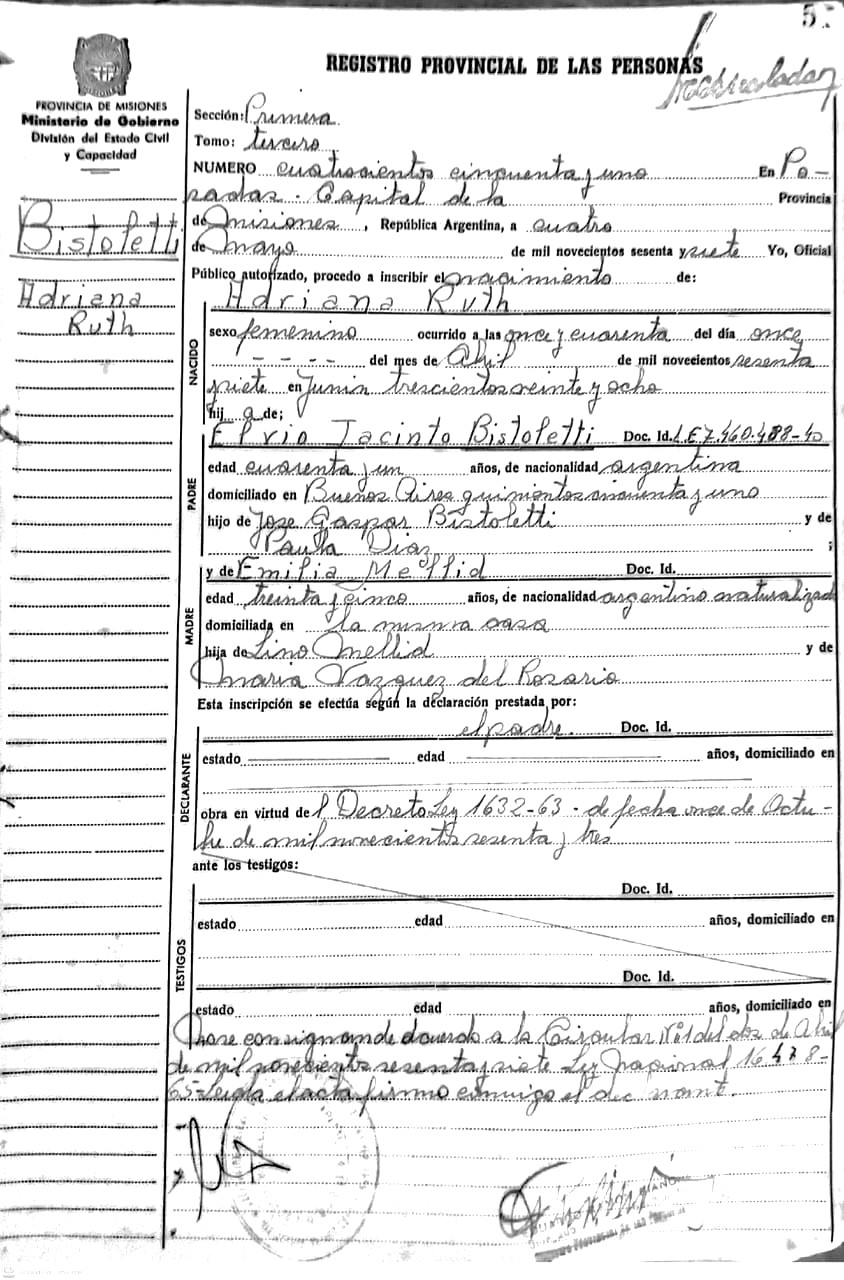 5
REGISTRO PROVINCIAL DE LAS PERSONAS
PROVINCIA DE MISIONES
Ministerio de Gobierno
División del Estado Civil
y Capacidad
Bistoletti
Adriana
Ruth
Sección: Primera
Tomo: tercero
NUMERO cuatrocientos cinquenta y uno En Po-
sadas. Capital de la Provincia
de Misiones, República Argentina, a cuatro
de mayo de mil novecientos sesenta y siete Yo, Oficial
Público autorizado, procedo a inscribir el nacimiento de:
NACIDO
Adriana Ruth
sexo femenino ocurrido a las once y cuarenta del día once
---- del mes de Abril de mil novecientos sesenta
y siete en Junin trescientos veinte y ocho
hij a de;
PADRE
Elvio Jacinto Bistoletti Doc. Id. L.E 7.460.488-40
edad cuarenta y un años, de nacionalidad argentina
domiciliado en Buenos Aires quinientos cincuenta y uno
hijo de Jose Gaspar Bistoletti y de
Paula Diaz ;
MADRE
y de Emilia Mellid Doc. Id.
edad treinta y cinco años, de nacionalidad argentino naturalizad
domiciliada en la misma casa
hija de Lino Mellid y de
Maria Vazquez del Rosario
Esta inscripción se efectúa según la declaración prestada por:
DECLARANTE
el padre. Doc. Id.
estado edad años, domiciliado en
obra en virtud de l Decreto Ley 1632-63 - de fecha once de Octu-
bre de mil novecientos sesenta y tres
ante los testigos:
TESTIGOS
Doc. Id.
estado edad años, domiciliado en
Doc. Id.
estado edad años, domiciliado en
consignan de acuerdo a la Circular Nº1 del dos de Abril
de mil novecientos sesenta y siete Ley Nacional 16.478-
65- Leida el acta firmo conmigo el dec